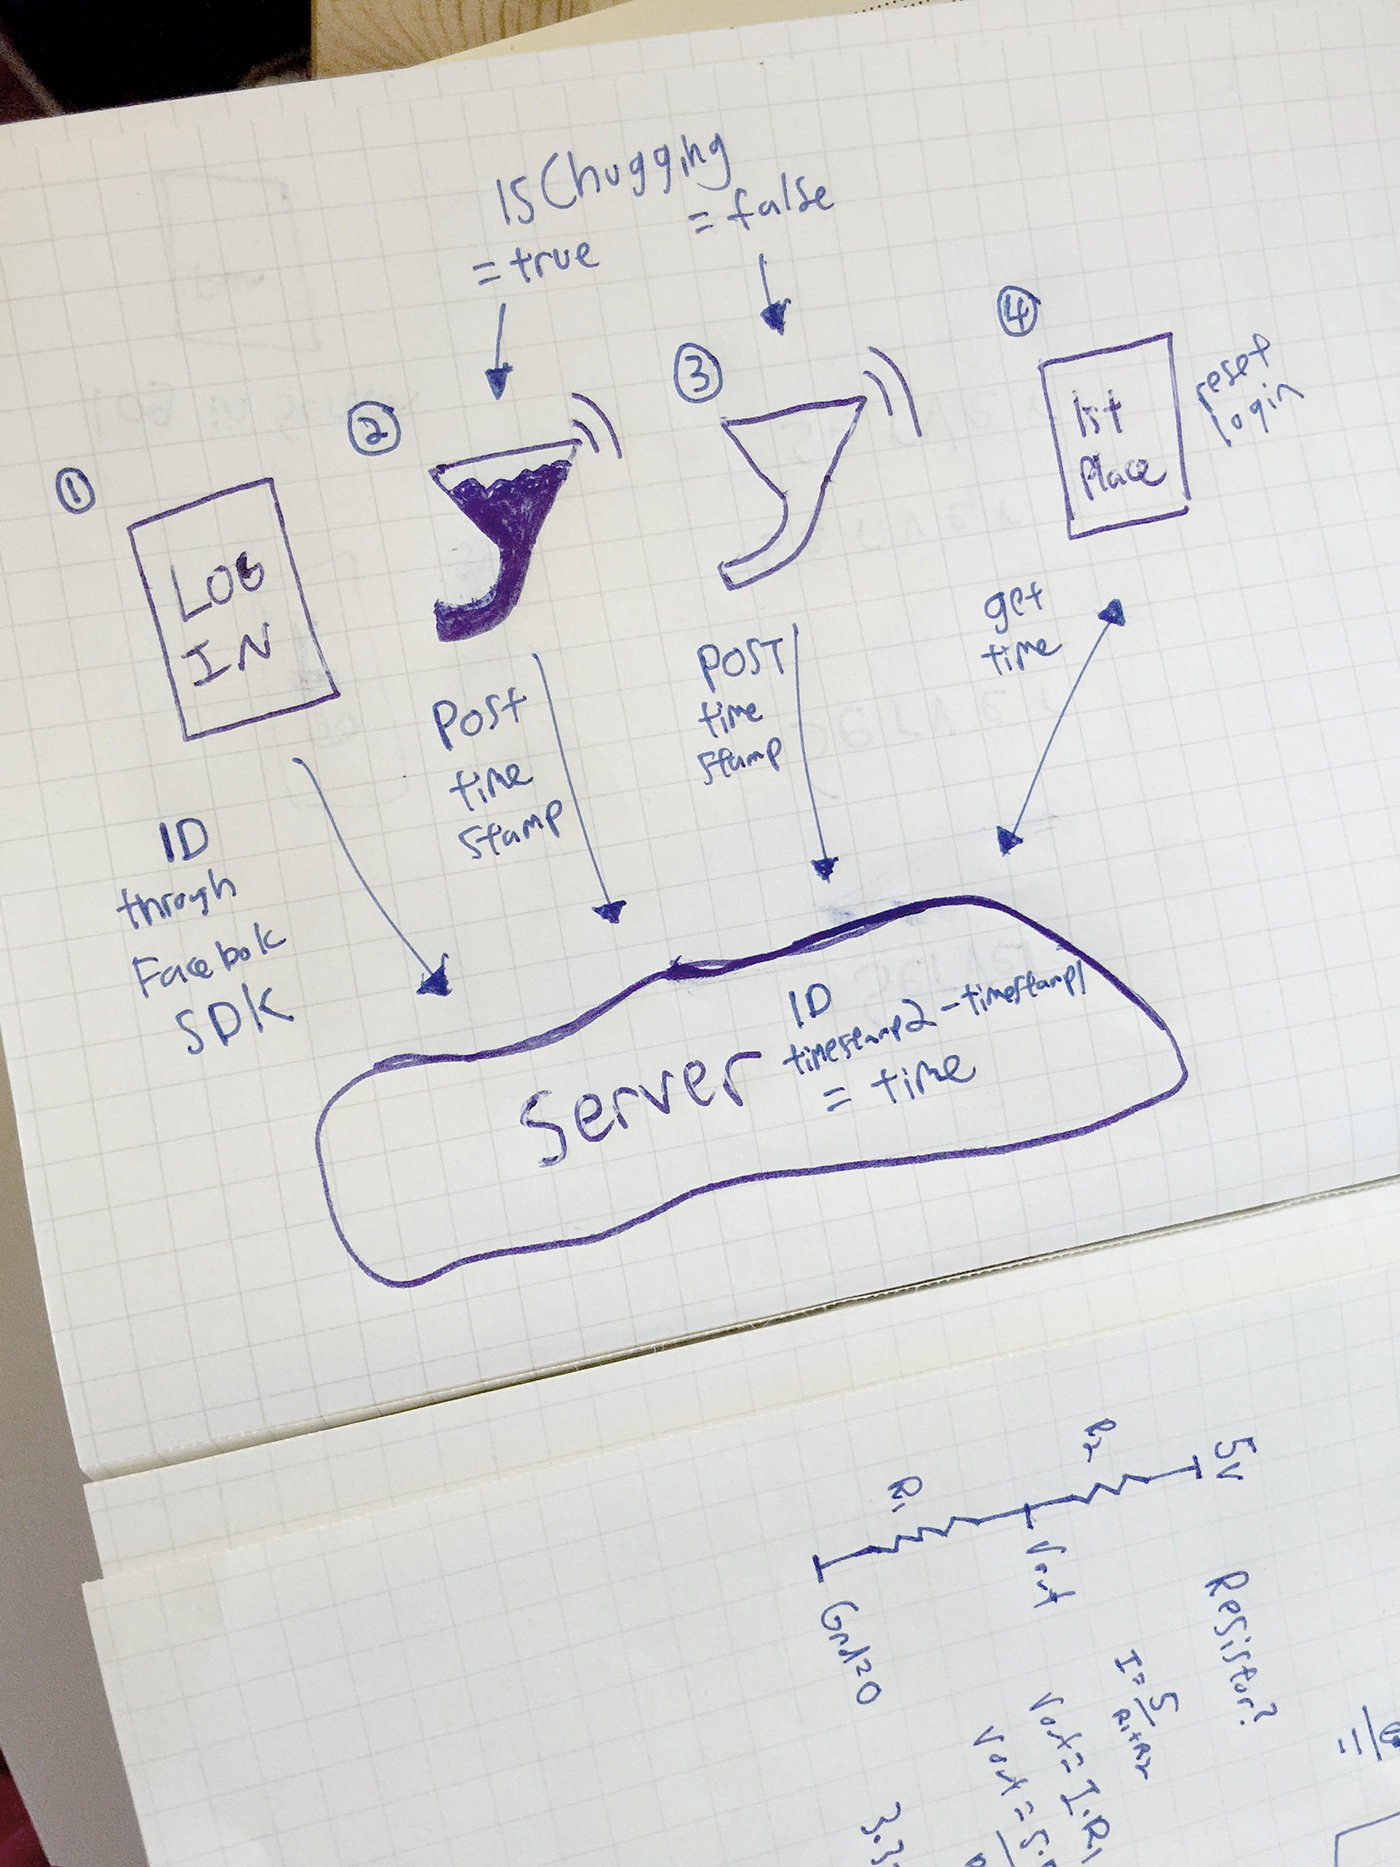 isChugging
= true
= false
①
LOG
IN
②
③
④
1st
Place
reset
login
ID
throgh
Facebok
SDK
Post
time
stamp
POST
time
stamp
get
time
Server
ID
timestamp2 - timestamp1
= time
5V
R2
R1
Vout
Gnd=0
Resistor?
I = 5
R1+R2
Vout = I.R1
Vout = 5.
3.3